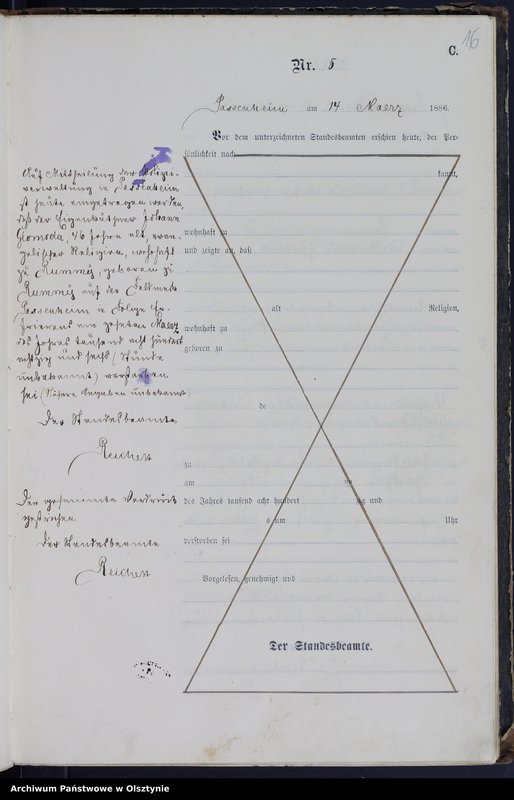 16
C.
Nr. 5
Passenheim am 14 Maerz 1886.
Vor dem unterzeichneten Standesbeamten erschien heute, der Per-
sönlichkeit nach
kannt,
wohnhaft zu
und zeigte an, daß
alt Religion,
wohnhaft zu
geboren zu
de
zu
am ten
des Jahres tausend acht hundert zig und
s um Uhr
verstorben sei
Vorgelesen, genehmigt und
Der Standesbeamte.
Auf Mittheilung der Polizei-
verwaltung in Passenheim
ist heute eingetragen worden,
daß der Eigenkäthner Johann
46 Jahre alt, evan-
gelischer Religion, wohnhaft
zu Rummy, geboren zu
Rummy auf der Feldmark
Passenheim in Folge Er-
frierens am zehnten Maerz
des Jahres tausend acht hundert
achtzig und sechs (Stunde
unbekannt) verstorben
sei (Nähere Angaben unbekannt)
Der Standesbeamte
Reichert
Der gesammte Vordruck
gestrichen
Der Standesbeamte
Reichert
Archiwum Państwowe w Olsztynie